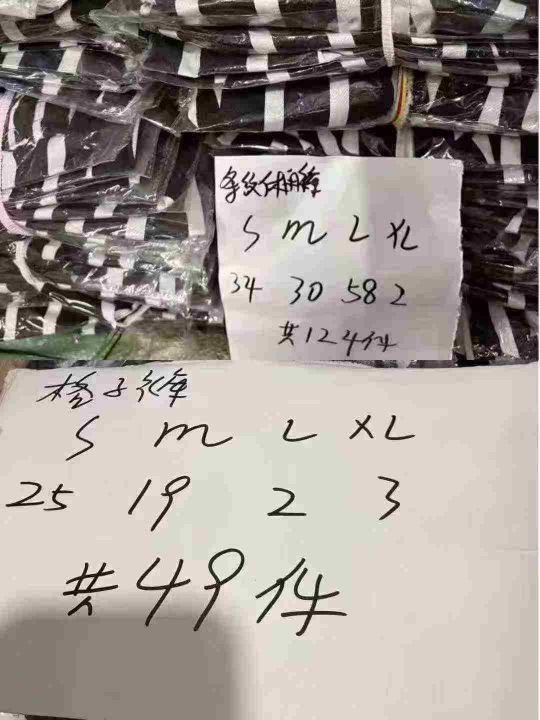 条纹休闲裤
S M L XL
34 30 58 2
共124件
格子裤
S M L XL
25 19 2 3
共49件